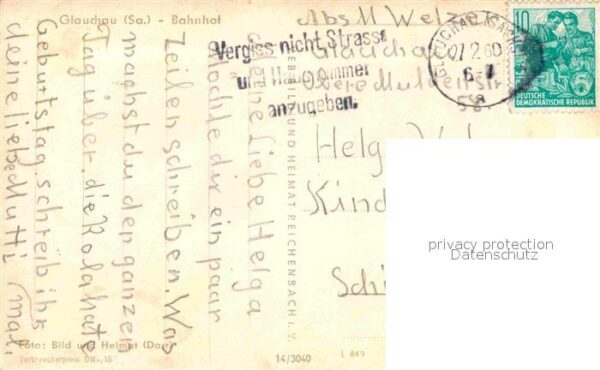 Glauchau (Sa.) - Bahnhof
Meine Liebe Helga
möchte dir ein paar
Zeilen schreiben. Was
machst du den ganzen
Tag über. die Rola hate
Geburtstag schreib ihr
deine liebe Mutti mal.
Foto: Bild und Heimat (Darr)
Verbraucherpreis DM -,16
14/3040
L 849
BILD UND HEIMAT REICHENBACH I. V.
Vergiss nicht Strasse
und Hausnummer
anzugeben.
GLAUCHAU (SACHS)
-7.2.60
a
DEUTSCHE
DEMOKRATISCHE REPUBLIK
10
Abs. M Welzel
Glauchau
Obere Muldenstr
58
Helga
Kind
Schi
privacy protection
Datenschutz